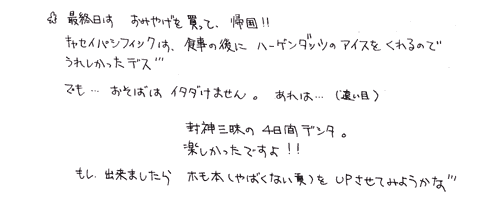 ☆ 最終日は おみやげを買って、帰国!!
キャセイパシフィックは、食事の後に ハーゲンダッツのアイスをくれるので
うれしかったデス'''
でも… おそばは イタダけません。 あれは…(遠い目)
封神三昧の 4日間デシタ。
楽しかったですよ!!
もし、出来ましたら ホモ本(やばくない頁)を UPさせてみようかな'''